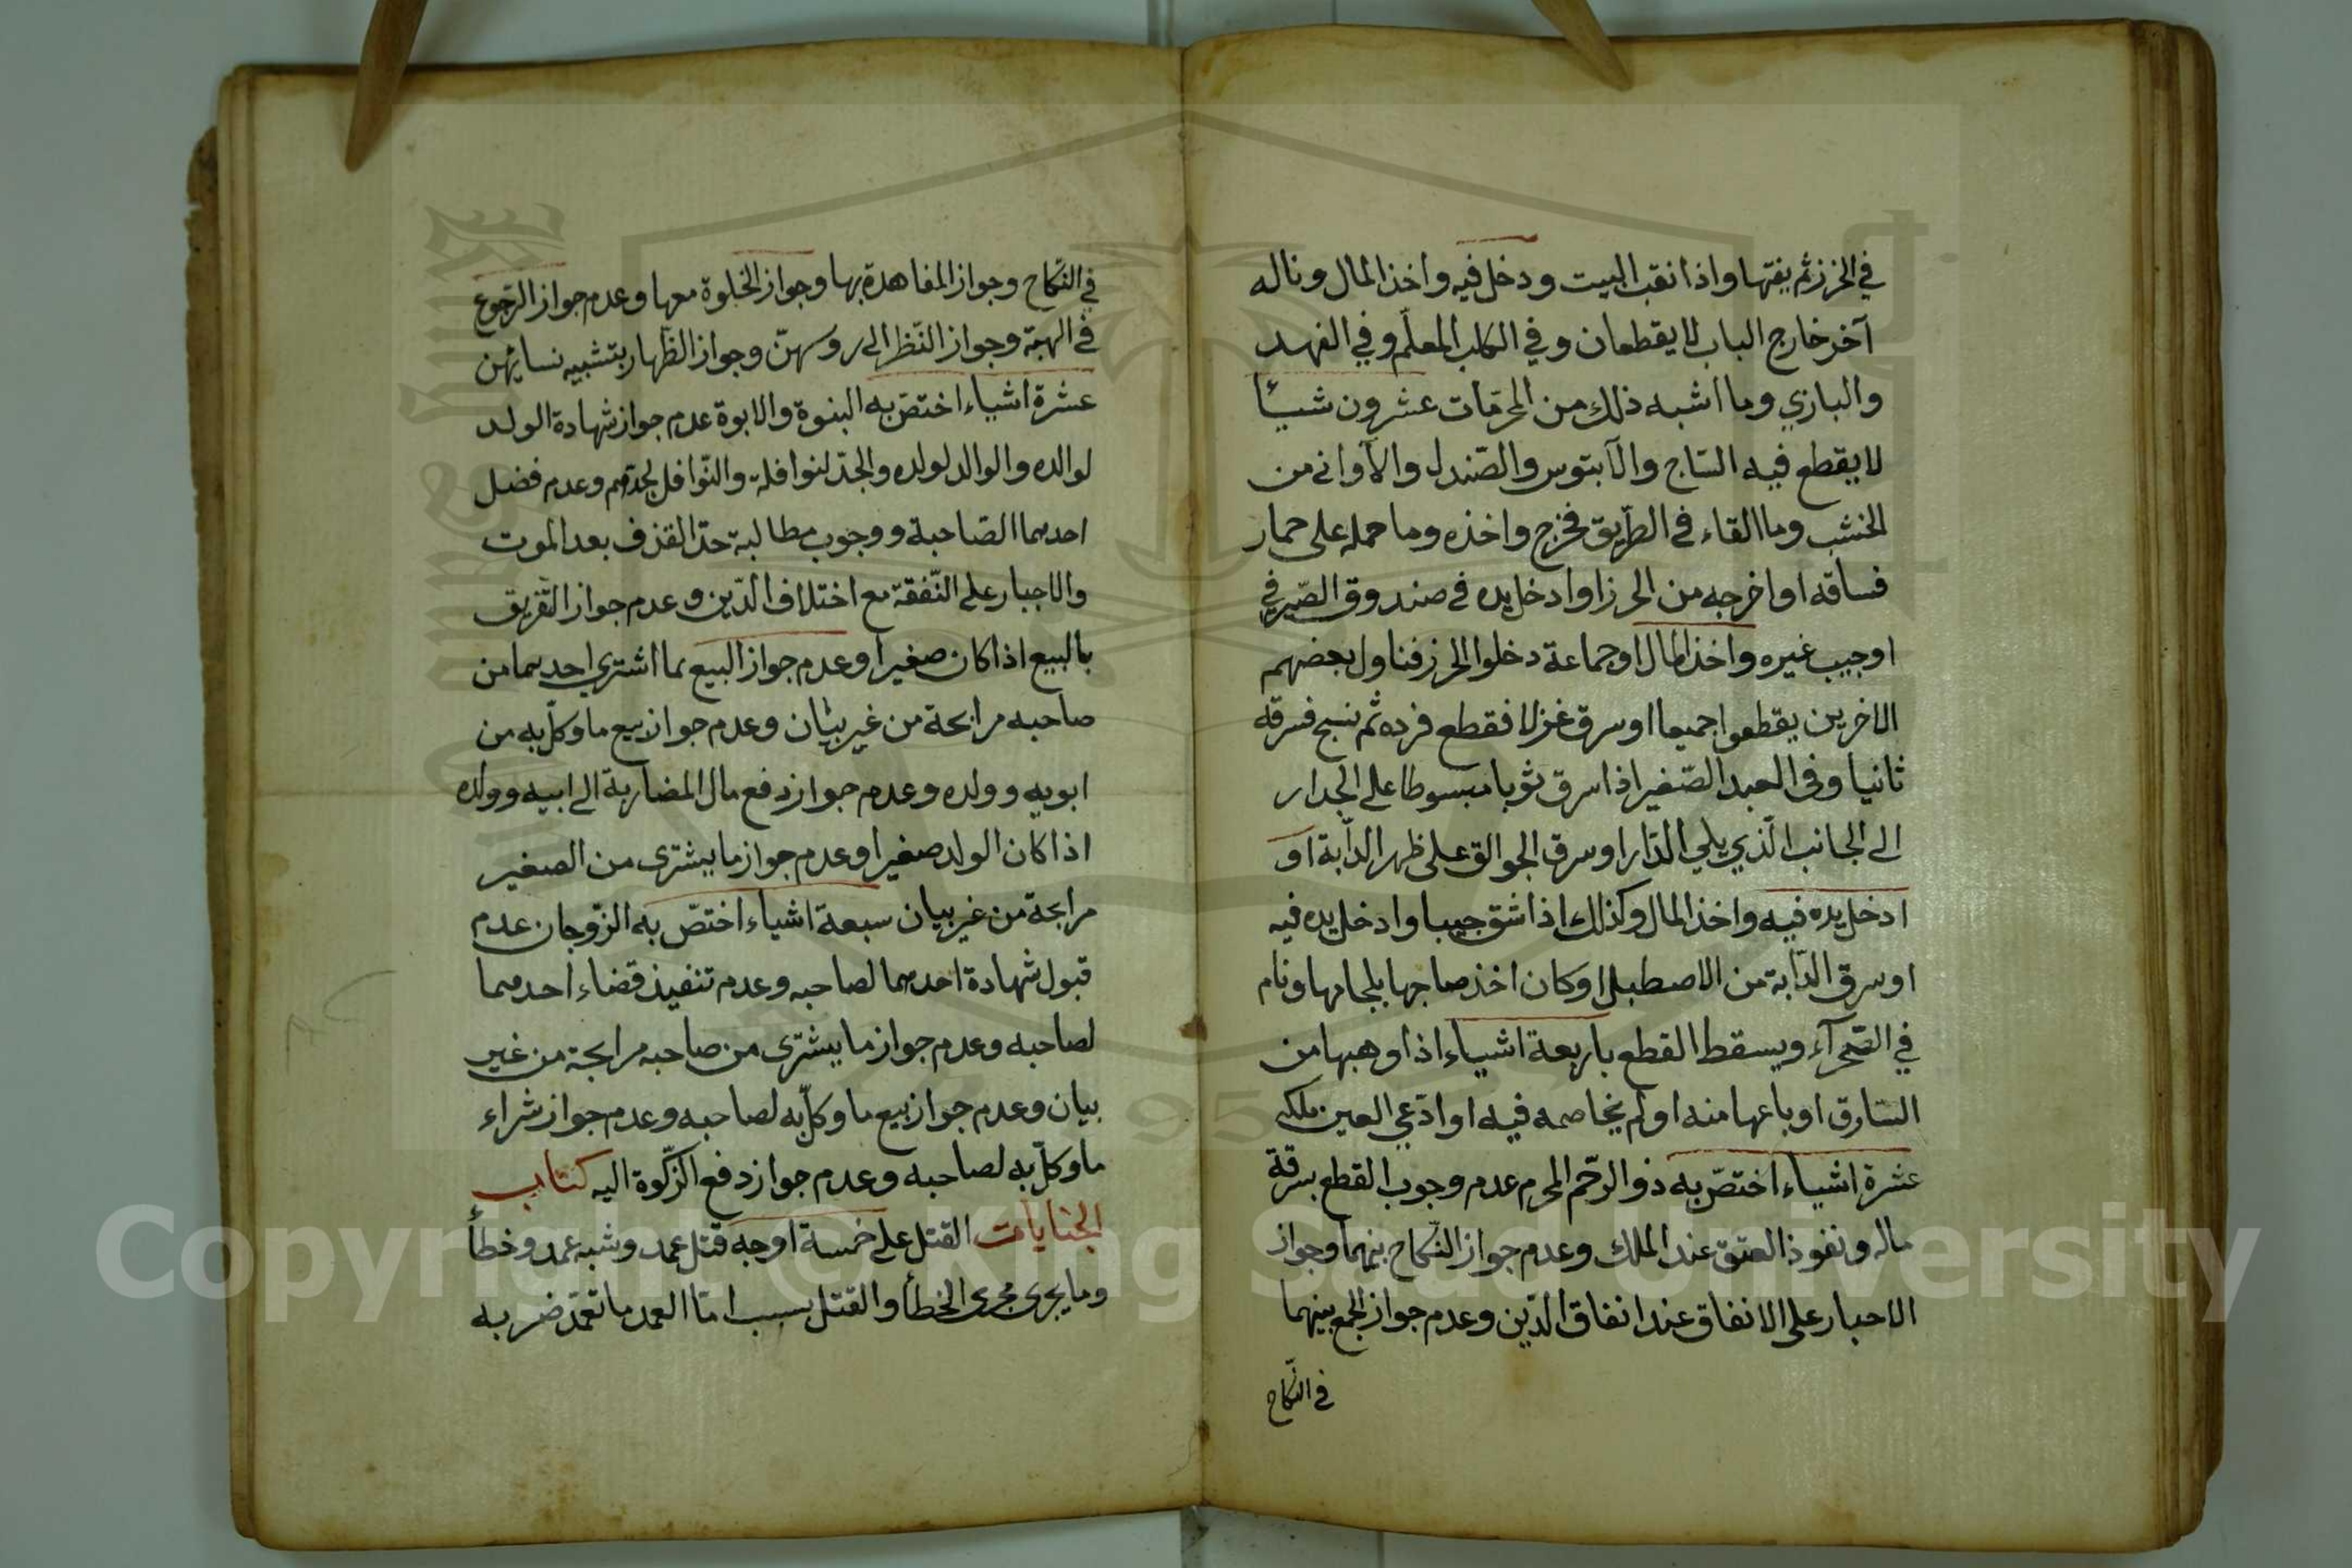 في الحرز ثم يفتها واذا نقب البيت ودخل فيه واخذ المال وناله
آخر خارج الباب لا يقطعان وفي الكلب المعلّم وفي الفهد
والبازي وما اشبه ذلك من المحرّمات عشرون شيئا
لا يقطع فيه السّاج والآبنوس والصّندل والأواني من
الخشب وما القاء في الطّريق فخرج واخذه وما حمله على حمار
فساقه او اخرجه من الحرز او ادخل يده في صندوق الصّيرفي
او جيب غيره واخذ المال او جماعة دخلوا الحرز فناول بعضهم
الاخرين يقطعوا جميعا او سرق غزلا فقطع فرده ثم نسج فسرقه
ثانيا وفي العبد الصّغير اذا سرق ثوبا مبسوطا على الجدار
الى الجانب الّذي يلي الدّار او سرق الجوالق على ظهر الدّابة او
ادخل يده فيه واخذ المال وكذلك اذا شق جيبا وادخل يده فيه
او سرق الدّابة من الاصطبل او كان اخذ صاحبها بلجامها ونام
في الصّحرآء ويسقط القطع باربعة اشياء اذا وهبها من
السّارق او باعها منه او لم يخاصمه فيه او ادّعي العين ملكه
عشرة اشياء اختصّ به ذو الرّحم المحرم عدم وجوب القطع بسرقة
ماله ونفوذ العتق عند الملك وعدم جواز النّكاح بينهما وجواز
الاجبار على الانفاق عند انفاق الدّين وعدم جواز الجمع بينهما
في النّكاح
في النّكاح وجواز المفاهدة بها وجواز الخلوة معها وعدم جواز الرّجوع
في الهبة وجواز النّظر الى روسهنّ وجواز الظّهار بتشبيه نسائهن
عشرة اشياء اختصّ به البنوة والابوة عدم جواز شهادة الولد
لوالده والوالد لولده والجدّ لنوافلة والنّوافل لجدّهم وعدم فضل
احدهما الصاحبة ووجوب مطالبة حدّ القذف بعد الموت
والاجبار على النّفقة مع اختلاف الدّين وعدم جواز التّفريق
بالبيع اذا كان صغيرا وعدم جواز البيع بما اشتري احدهما من
صاحبه مرابحة من غير بيان وعدم جواز بيع ما وكلّ به من
ابويه وولده وعدم جواز دفع مال المضاربة الى ابيه وولده
اذا كان الولد صغيرا وعدم جواز ما يشترى من الصغير
مرابحة من غير بيان سبعة اشياء اختصّ به الزّوجان عدم
قبول شهادة احدهما لصاحبه وعدم تنفيذ قضاء احدهما
لصاحبه وعدم جواز ما يشترى من صاحبه مرابحة من غير
بيان وعدم جواز بيع ما وكلّ به لصاحبه وعدم جواز شراء
ما وكلّ به لصاحبه وعدم جواز دفع الزّكوة اليه كتاب
الجنايات القتل على خمسة اوجه قتل عمد وشبه عمد وخطأ
وما يجرى مجرى الخطأ والقتل بسبب امّا العمد ما تعمّد ضربه
Copyright © King Saud University